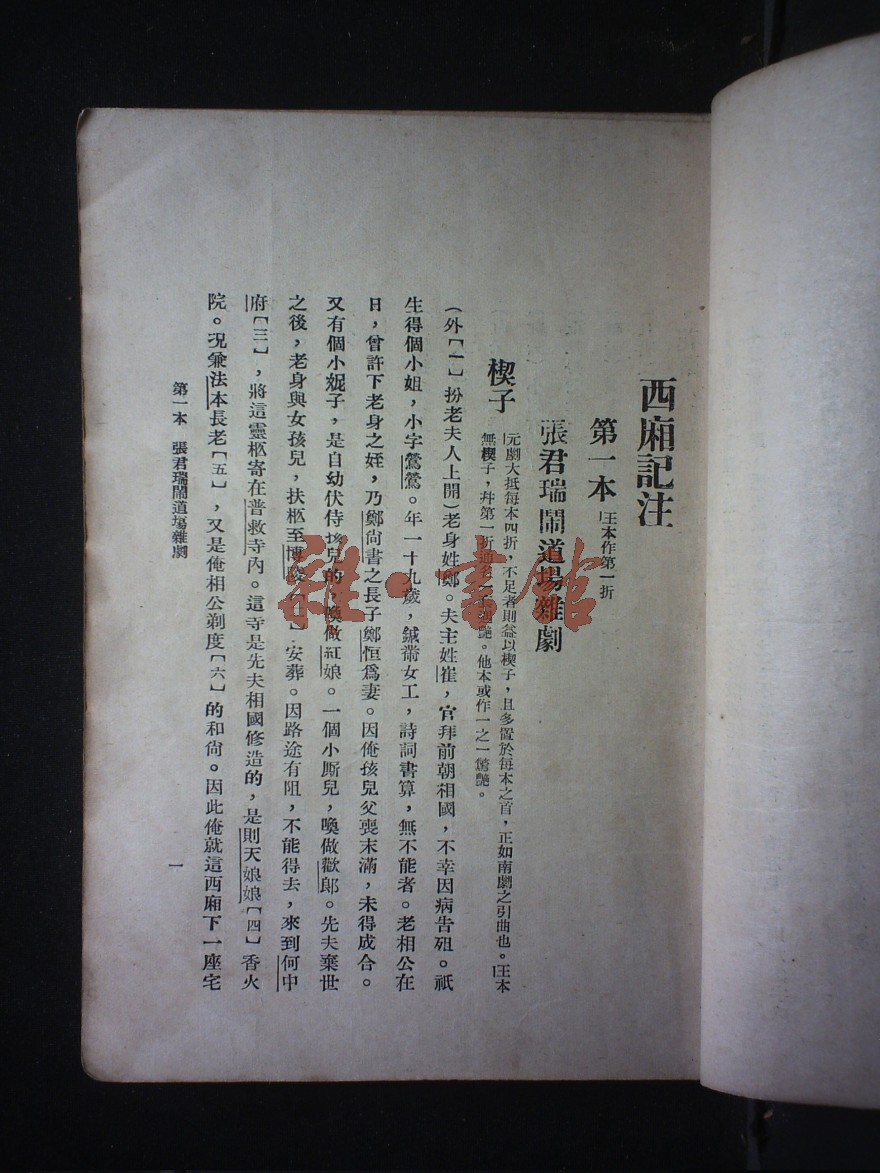 西廂記注
第一本 王本作第一折
張君瑞鬧道場雜劇
楔子 元劇大抵每本四折，不足者則益以楔子，且多置於每本之首，正如南劇之引曲也。王本
無楔子，幷第一折通名一 艷。他本或作一之一驚艷。
（外【一】扮老夫人上開）老身姓鄭。夫主姓崔，官拜前朝相國，不幸因病吿殂。祇
生得個小姐，小字鶯鶯。年一十九歲，鍼黹女工，詩詞書算，無不能者。老相公在
日，曾許下老身之姪，乃鄭尙書之長子鄭恒爲妻。因俺孩兒父喪未滿，未得成合。
又有個小妮子，是自幼伏侍孩兒的，喚做紅娘。一個小廝兒，喚做歡郎。先夫棄世
之後，老身與女孩兒，扶柩至博陵【二】安葬。因路途有阻，不能得去，來到何中
府【三】，將這靈柩寄在普救寺內。這寺是先夫相國修造的，是則天娘娘【四】香火
院。況兼法本長老【五】，又是俺相公剃度【六】的和尙。因此俺就這西廂下一座宅
第一本　張君瑞鬧道場雜劇
一
雜·書館